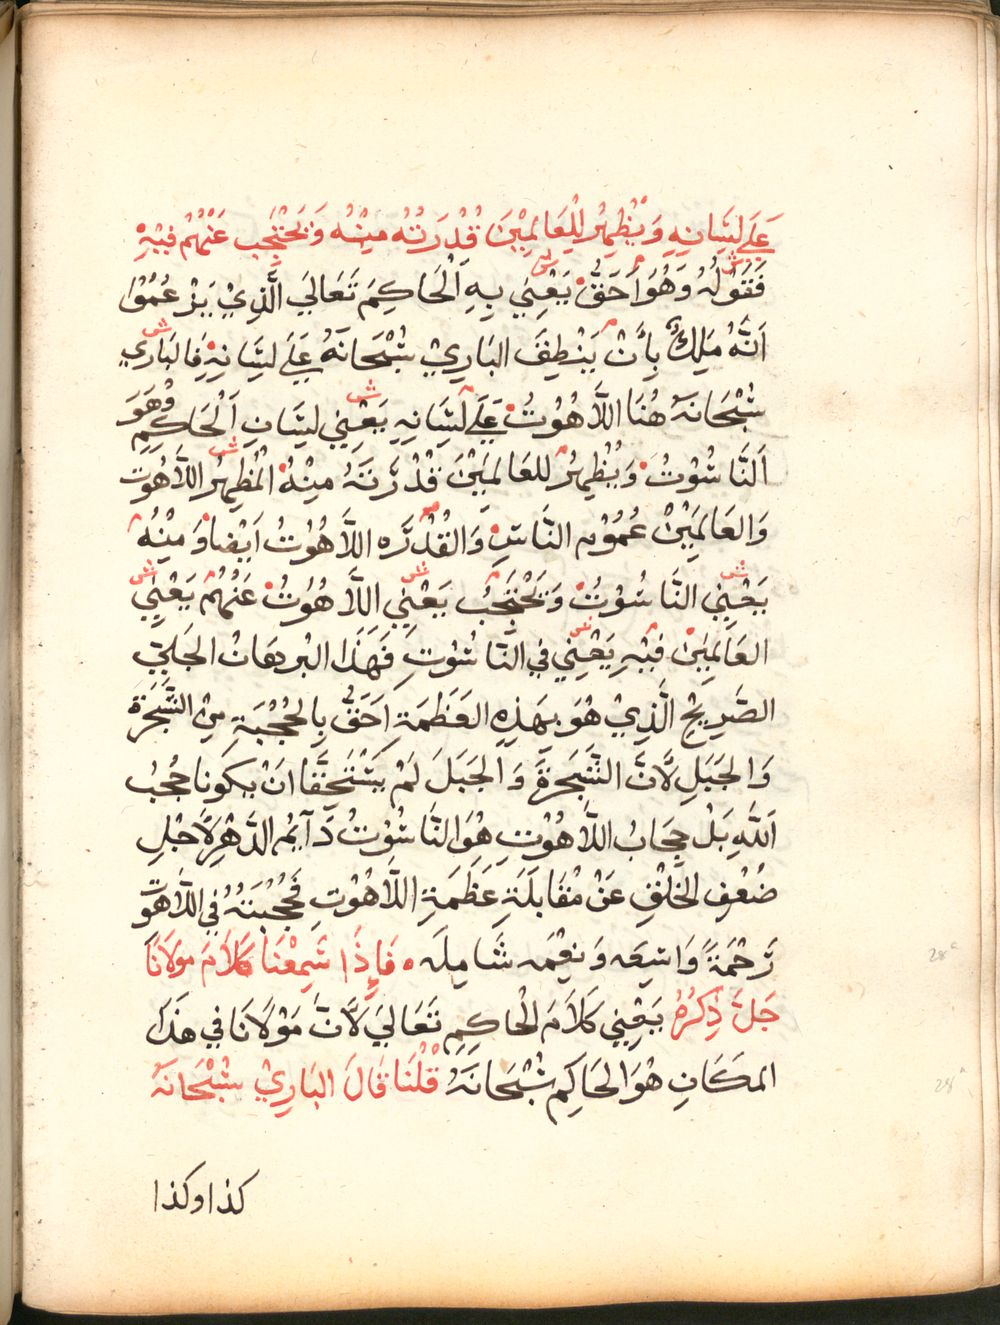 عَلَى لِسَانِهِ وَيُظْهِرُ لِلْعَالَمِيْنَ قُدْرَتُهُ مِنْهُ وَيَحْتَجِب عَنْهُمُ فِيْهِ
فَقَوْلُهُ وَهُوَ اَحَقُّ يَعْنِي بِهِ اَلْحَاكِمَ تَعَالَي الَّذِيْ يَزْعُمُوْا
اَنَّهُ مَلِكٌ بِأَنْ يَنْطِقَ البَارِيْ سُبْحَانَهُ عَلَى لِسَانِهِ فَالبَارِي
سُبْحَانَهُ هُنَا اللَّاهُوْتُ عَلَى لِسَانِهِ يَعْنِي لِسَانِ اَلْحَاكِمِ وُهَوَ
اَلنَّاسُوْتُ وَيُظْهِرُ لِلعَالَمِيْنَ قُدْرَتَهُ مِنْهُ الْمُظْهِرُ اللَّاهُوْت
وَالعَالَمِيْنَ عُمُوْم النَّاسِ وَالْقُدْرَه اللَّاهُوْتُ اَيْضًا وَمِنْهُ
يَعْنِي النَّاسُوْتُ وَيَحْتَجِبُ يَعْنِي اللَّاهُوُتُ عَنْهُمُ يَعْنِي
العَالَمِيْنَ فِيْهِ يَعْنِي فِي النَّاسُوْتِ فَهَذَا البُرهَانُ الجَلِيّ
الصَّرِيْحُ الَّذِيْ هُوَ بِهَذِهِ العَظَمَةِ اَحَقُّ بِالحُجْبَةِ مِنَ الشَّجَرَة
وَالجَبَلِ لَاَنَّ الشَّجَرَةَ وَالجَبَلَ لَمْ يَسْتَحِقَّا اَنْ يَكونا حُجُبُ
اَللّٰهِ بَلْ حِجَابُ اللَّاهُوْتِ هُوَ النَّاسُوْتُ دَآيم الدَّهْرِ لاَجْلِ
ضُعْفِ الخَلْقِ عَنْ مُقَابَلَةِ عَظَمَةِ اللَّاهُوْتِ فَحُجْبَتُهُ فِي اللَّاهوْت
رَحْمَةً وَاسِعَه وَنِعْمَه شَامِلَه ۰ فَاِذَا سَمِعْنَا كَلاَمَ مولانَا
جَلَّ ذِكْرُهُ يَعْنِي كَلاَمَ الْحاكِمِ تَعَالَي لَاَنَّ مَوْلاَنَا في هَذَا
المَكَانِ هُوَ الحَاكِم سُبْحَانَهُ قُلْنَا قَالَ البَارِيْ سُبْحَانَهُ
كذا وكذا